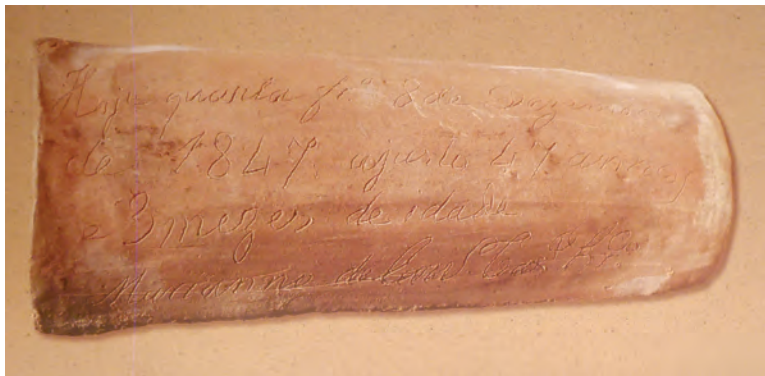 Hoje quarta fra 8 de Dezembro
de 1847 ajusto 47 annos
e 3 mezes de idade
Marianno da Costa